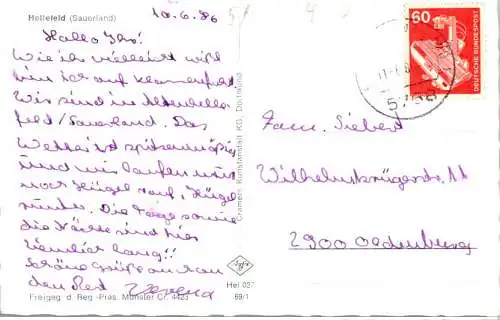 Hellefeld (Sauerland)
10.6.86
Hallo Ihr!
Wie ihr vielleicht wißt
bin ich auf Klassenfahrt.
Wir sind in Altenhelle-
feld/Sauerland. Das
Wetter ist spitzenmäßig
und wir laufen nur
noch Hügel rauf, Hügel
runter. Die Tage sowie
die Nächte sind hier
ziemlich lang!!
Schöne Grüße an
den Rest Verena
Freigeg. d. Reg.-Präs. Münster Cr. 4423
Cramers Kunstanstalt KG, Dortmund
Hel 027
69/1
60
DEUTSCHE BUNDESPOST
Fam. Siebert
11
2900 Oldenburg